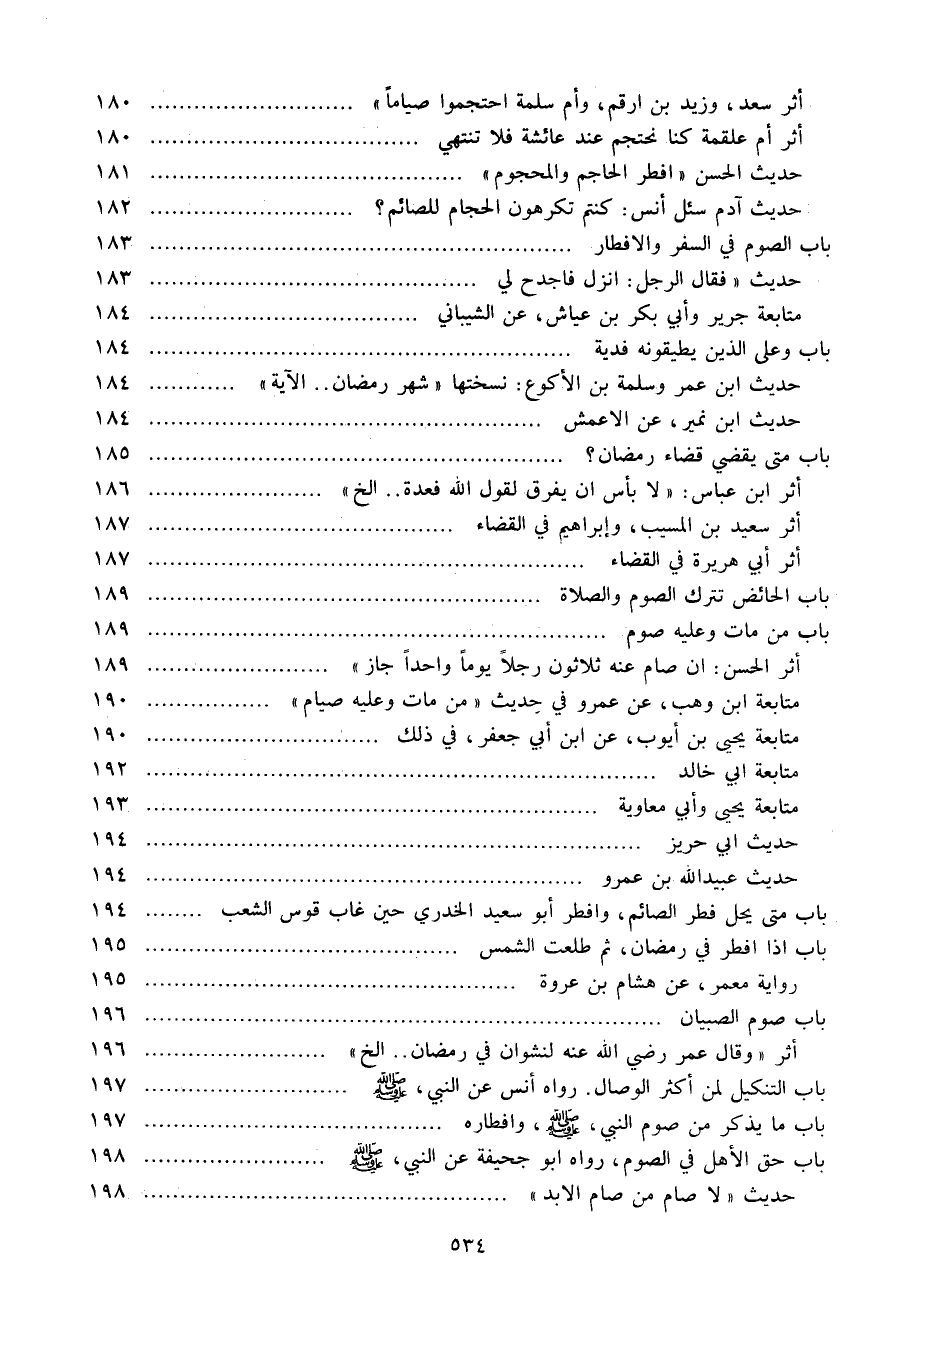 أثر سعد، وزيد بن ارقم، وأم سلمة احتجموا صياماً» ........................... ١٨٠
أثر أم علقمة كنا نحتجم عند عائشة فلا تنتهي ................................... ١٨٠
حديث الحسن «افطر الحاجم والمحجوم» ......................................... ١٨١
حديث آدم سئل أنس: كنتم تكرهون الحجام للصائم؟ ........................... ١٨٢
باب الصوم في السفر والافطار ........................................................ ١٨٣
حديث «فقال الرجل: انزل فاجدح لي ........................................... ١٨٣
متابعة جرير وأبي بكر بن عياش، عن الشيباني ................................... ١٨٤
باب وعلى الذين يطيقونه فدية ........................................................ ١٨٤
حديث ابن عمر وسلمة بن الأكوع: نسختها «شهر رمضان.. الآية» ............ ١٨٤
حديث ابن نمير، عن الاعمش .................................................... ١٨٤
باب متى يقضي قضاء رمضان؟ ....................................................... ١٨٥
أثر ابن عباس: «لا بأس ان يفرق لقول الله فعدة.. الخ» ........................ ١٨٦
أثر سعيد بن المسيب، وإبراهيم في القضاء ........................................ ١٨٧
أثر أبي هريرة في القضاء .......................................................... ١٨٧
باب الحائض تترك الصوم والصلاة .................................................... ١٨٩
باب من مات وعليه صوم ............................................................. ١٨٩
أثر الحسن: ان صام عنه ثلاثون رجلاً يوماً واحداً جاز» ........................ ١٨٩
متابعة ابن وهب، عن عمرو في حديث «من مات وعليه صيام» ................. ١٩٠
متابعة يحيى بن أيوب، عن ابن أبي جعفر، في ذلك ............................... ١٩٠
متابعة ابي خالد .................................................................... ١٩٢
متابعة يحيى وأبي معاوية ............................................................ ١٩٣
حديث ابي حريز .................................................................. ١٩٤
حديث عبيدالله بن عمرو .......................................................... ١٩٤
باب متى يحل فطر الصائم، وافطر أبو سعيد الخدري حين غاب قوس الشعب ........ ١٩٤
باب اذا افطر في رمضان، ثم طلعت الشمس ......................................... ١٩٥
رواية معمر، عن هشام بن عروة ................................................. ١٩٥
باب صوم الصبيان ..................................................................... ١٩٦
أثر «وقال عمر رضي الله عنه لنشوان في رمضان.. الخ» ........................ ١٩٦
باب التنكيل لمن أكثر الوصال. رواه أنس عن النبي، ﷺ ........................... ١٩٧
باب ما يذكر من صوم النبي، ﷺ، وافطاره ....................................... ١٩٧
باب حق الأهل في الصوم، رواه ابو جحيفة عن النبي، ﷺ ........................ ١٩٨
حديث «لا صام من صام الابد» ................................................ ١٩٨
٥٣٤